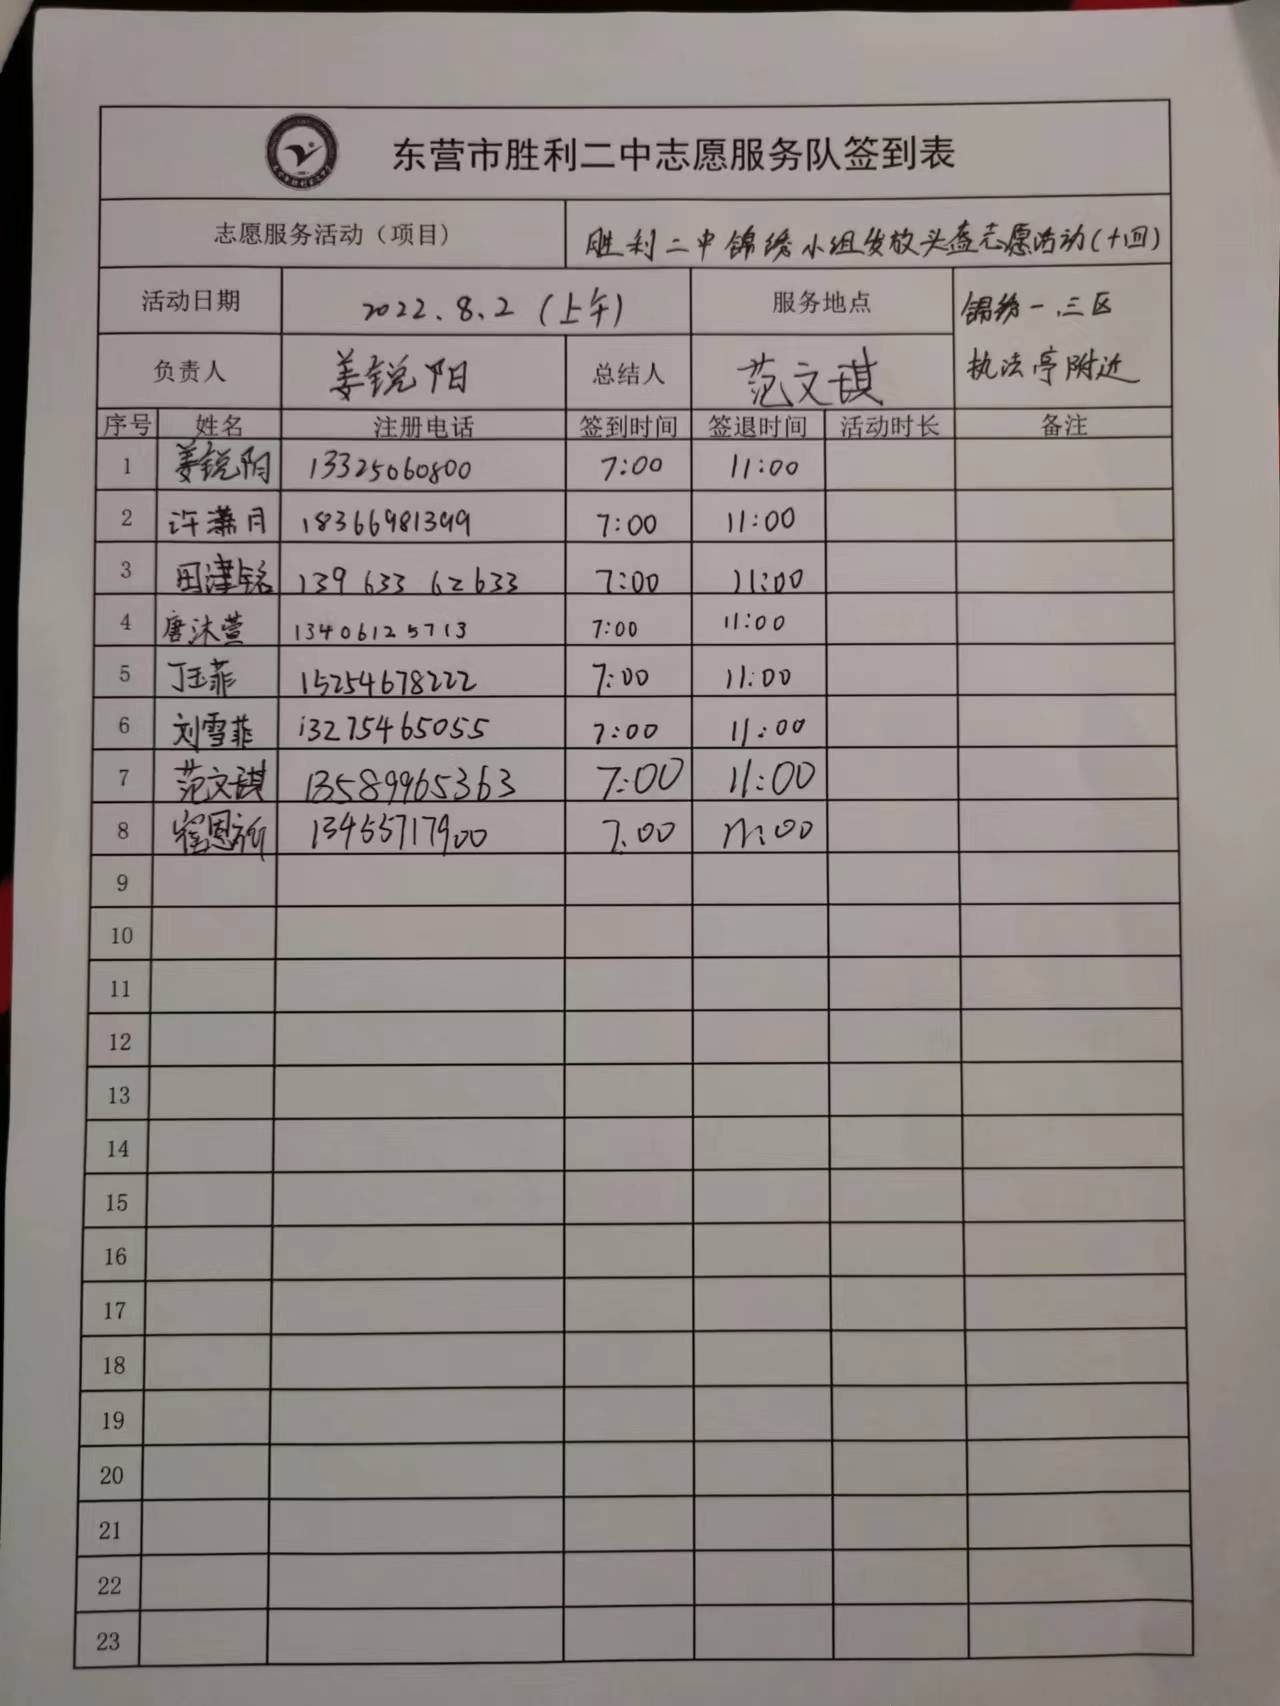 东营市胜利二中志愿服务队签到表
志愿服务活动（项目） 胜利二中锦绣小组发放头盔志愿活动(十四)
活动日期 2022.8.2（上午） 服务地点 锦绣一.三区
执法亭附近
负责人 姜锐阳 总结人 范文琪
序号 姓名 注册电话 签到时间 签退时间 活动时长 备注
1 姜锐阳 13325060800 7:00 11:00
2 许潇月 18366981399 7:00 11:00
3 田津铭 139 633 62633 7:00 11:00
4 唐沐萱 13406125713 7:00 11:00
5 丁玉菲 15254678222 7:00 11:00
6 刘雪菲 13275465055 7:00 11:00
7 范文琪 13589965363 7:00 11:00
8 恩 13455717900 7:00 11:00
9
10
11
12
13
14
15
16
17
18
19
20
21
22
23